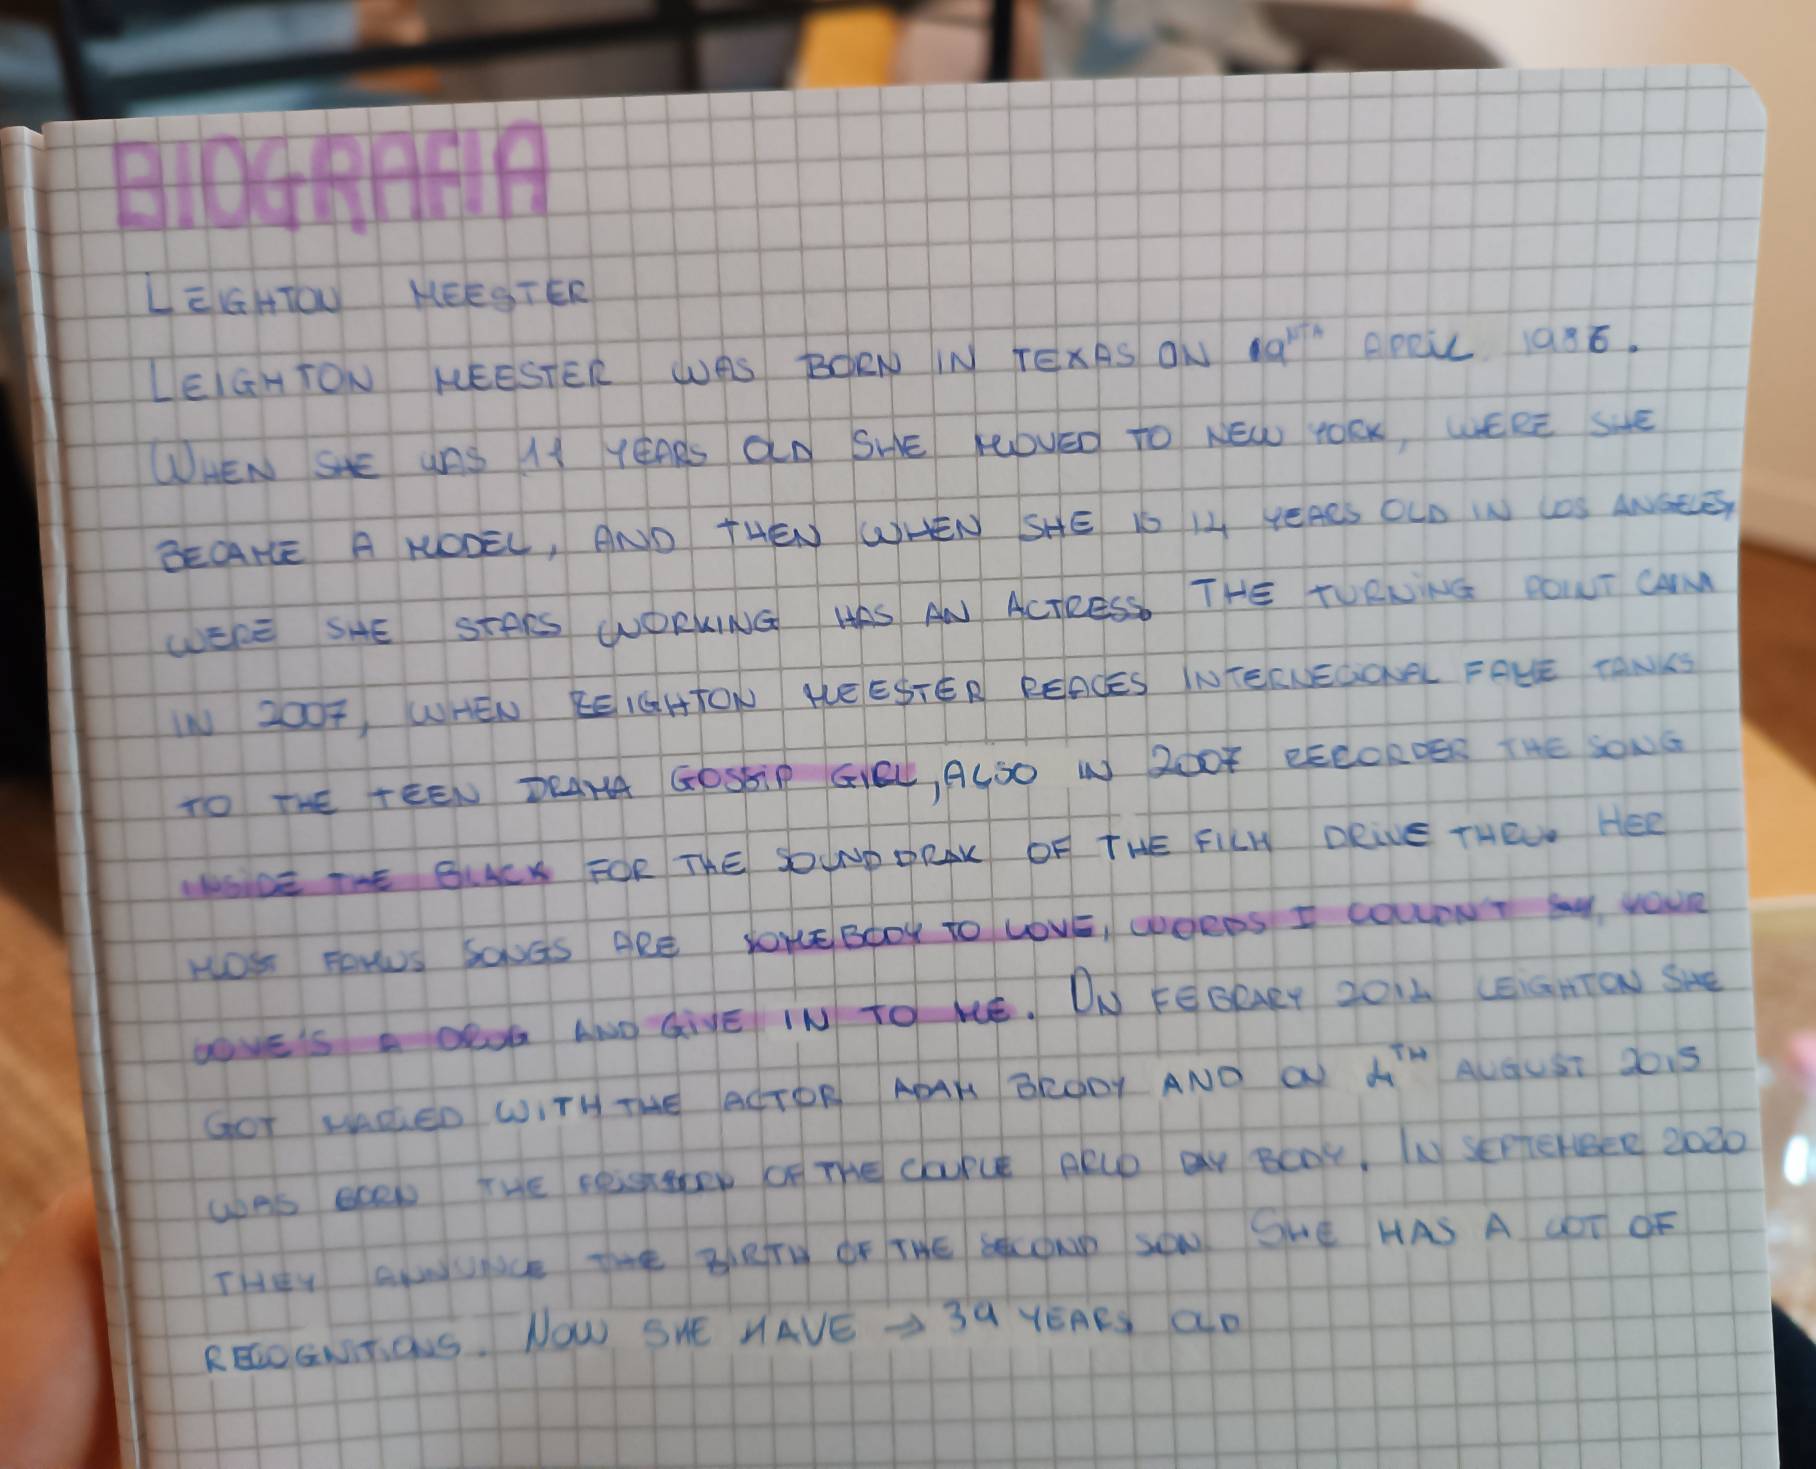 BIOGRAFIA
LEIGHTON MEESTER
LEIGHTON MEESTER WAS BORN IN TEXAS ON 19NTH APRIL 1986.
WHEN SHE WAS 11 YEARS OLD SHE MOVED TO NEW YORK, WERE SHE
BECAME A MODEL, AND THEN WHEN SHE IS 14 YEARS OLD IN LOS ANGELES,
WERE SHE STARS WORKING HAS AN ACTRESS. THE TURNING POINT CAM
IN 2007, WHEN LEIGHTON MEESTER REACES INTERNECIONAL FAME TANKS
TO THE TEEN DRAMA GOSSIP GIRL, ALSO IN 2007 RECORDER THE SONG
INSIDE THE BLACK FOR THE SOUNDDRAK OF THE FILM DRIVE THRU. HER
MOST FAMUS SONGS ARE SOMEBODY TO LOVE, WORDS I COULDN'T SAY, YOUR
LOVE'S A DRUG AND GIVE IN TO ME. ON FEBRARY 2014 LEIGHTON SHE
GOT MARIED WITH THE ACTOR ADAM BRODY AND ON 4TH AUGUST 2015
WAS BORN THE OF THE COUPLE ARLO DAY BODY. IN SEPTEMBER 2020
THEY ANNUNCE THE BIRTH OF THE SECOND SON. SHE HAS A LOT OF
RECOGNITIONS. NOW SHE HAVE → 39 YEARS OLD